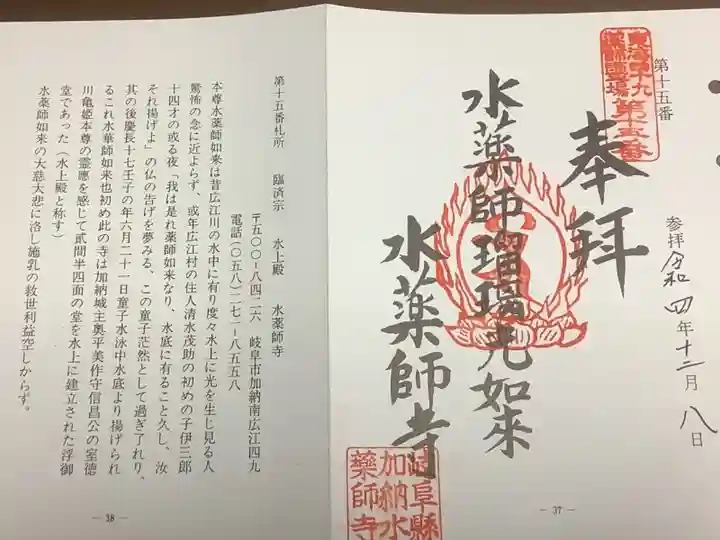 第十五番
東海四十九
薬師霊場
第十五番
奉拝
参拝 令和四年十二月八日
水薬師瑠璃光如来
水薬師寺
岐阜縣
加納水
薬師寺
― 37 ―
第十五番札所 臨済宗 水上殿 水薬師寺
〒五〇〇−八四二六 岐阜市加納南広江四九
電話(〇五八)二七二−八五五八
本尊水薬師如来は昔広江川の水中に有り度々水上に光を生じ見る人
驚怖の念に近よらず、或年広江村の住人清水茂助の初めの子伊三郎
十四才の或る夜「我は是れ薬師如来なり、水底に有ること久し、汝
それ揚げよ」の仏の告げを夢みる、この童子茫然として過ぎ了れり、
其の後慶長十七壬子の年六月二十一日童子水泳中水底より揚げられ
るこれ水華師如来也初め此の寺は加納城主奥平美作守信昌公の室徳
川亀姫本尊の霊應を感じて貮間半四面の堂を水上に建立された浮御
堂であった(水上殿と称す)
水薬師如来の大慈大悲に浴し施乳の救世利益空しからず。
― 38 ―